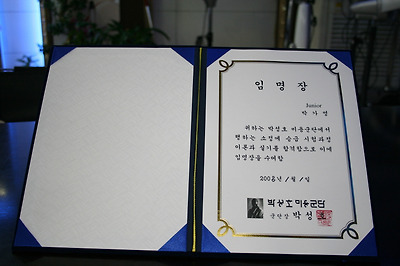 임 명 장
Junior
박 가 영
귀하는 박성호 미용군단에서
행하는 소정에 승급 시험과정
이론과 실기를 합격함으로 이에
임명장을 수여함
2008년 1월 1일
박성호미용군단
군단장 박 성